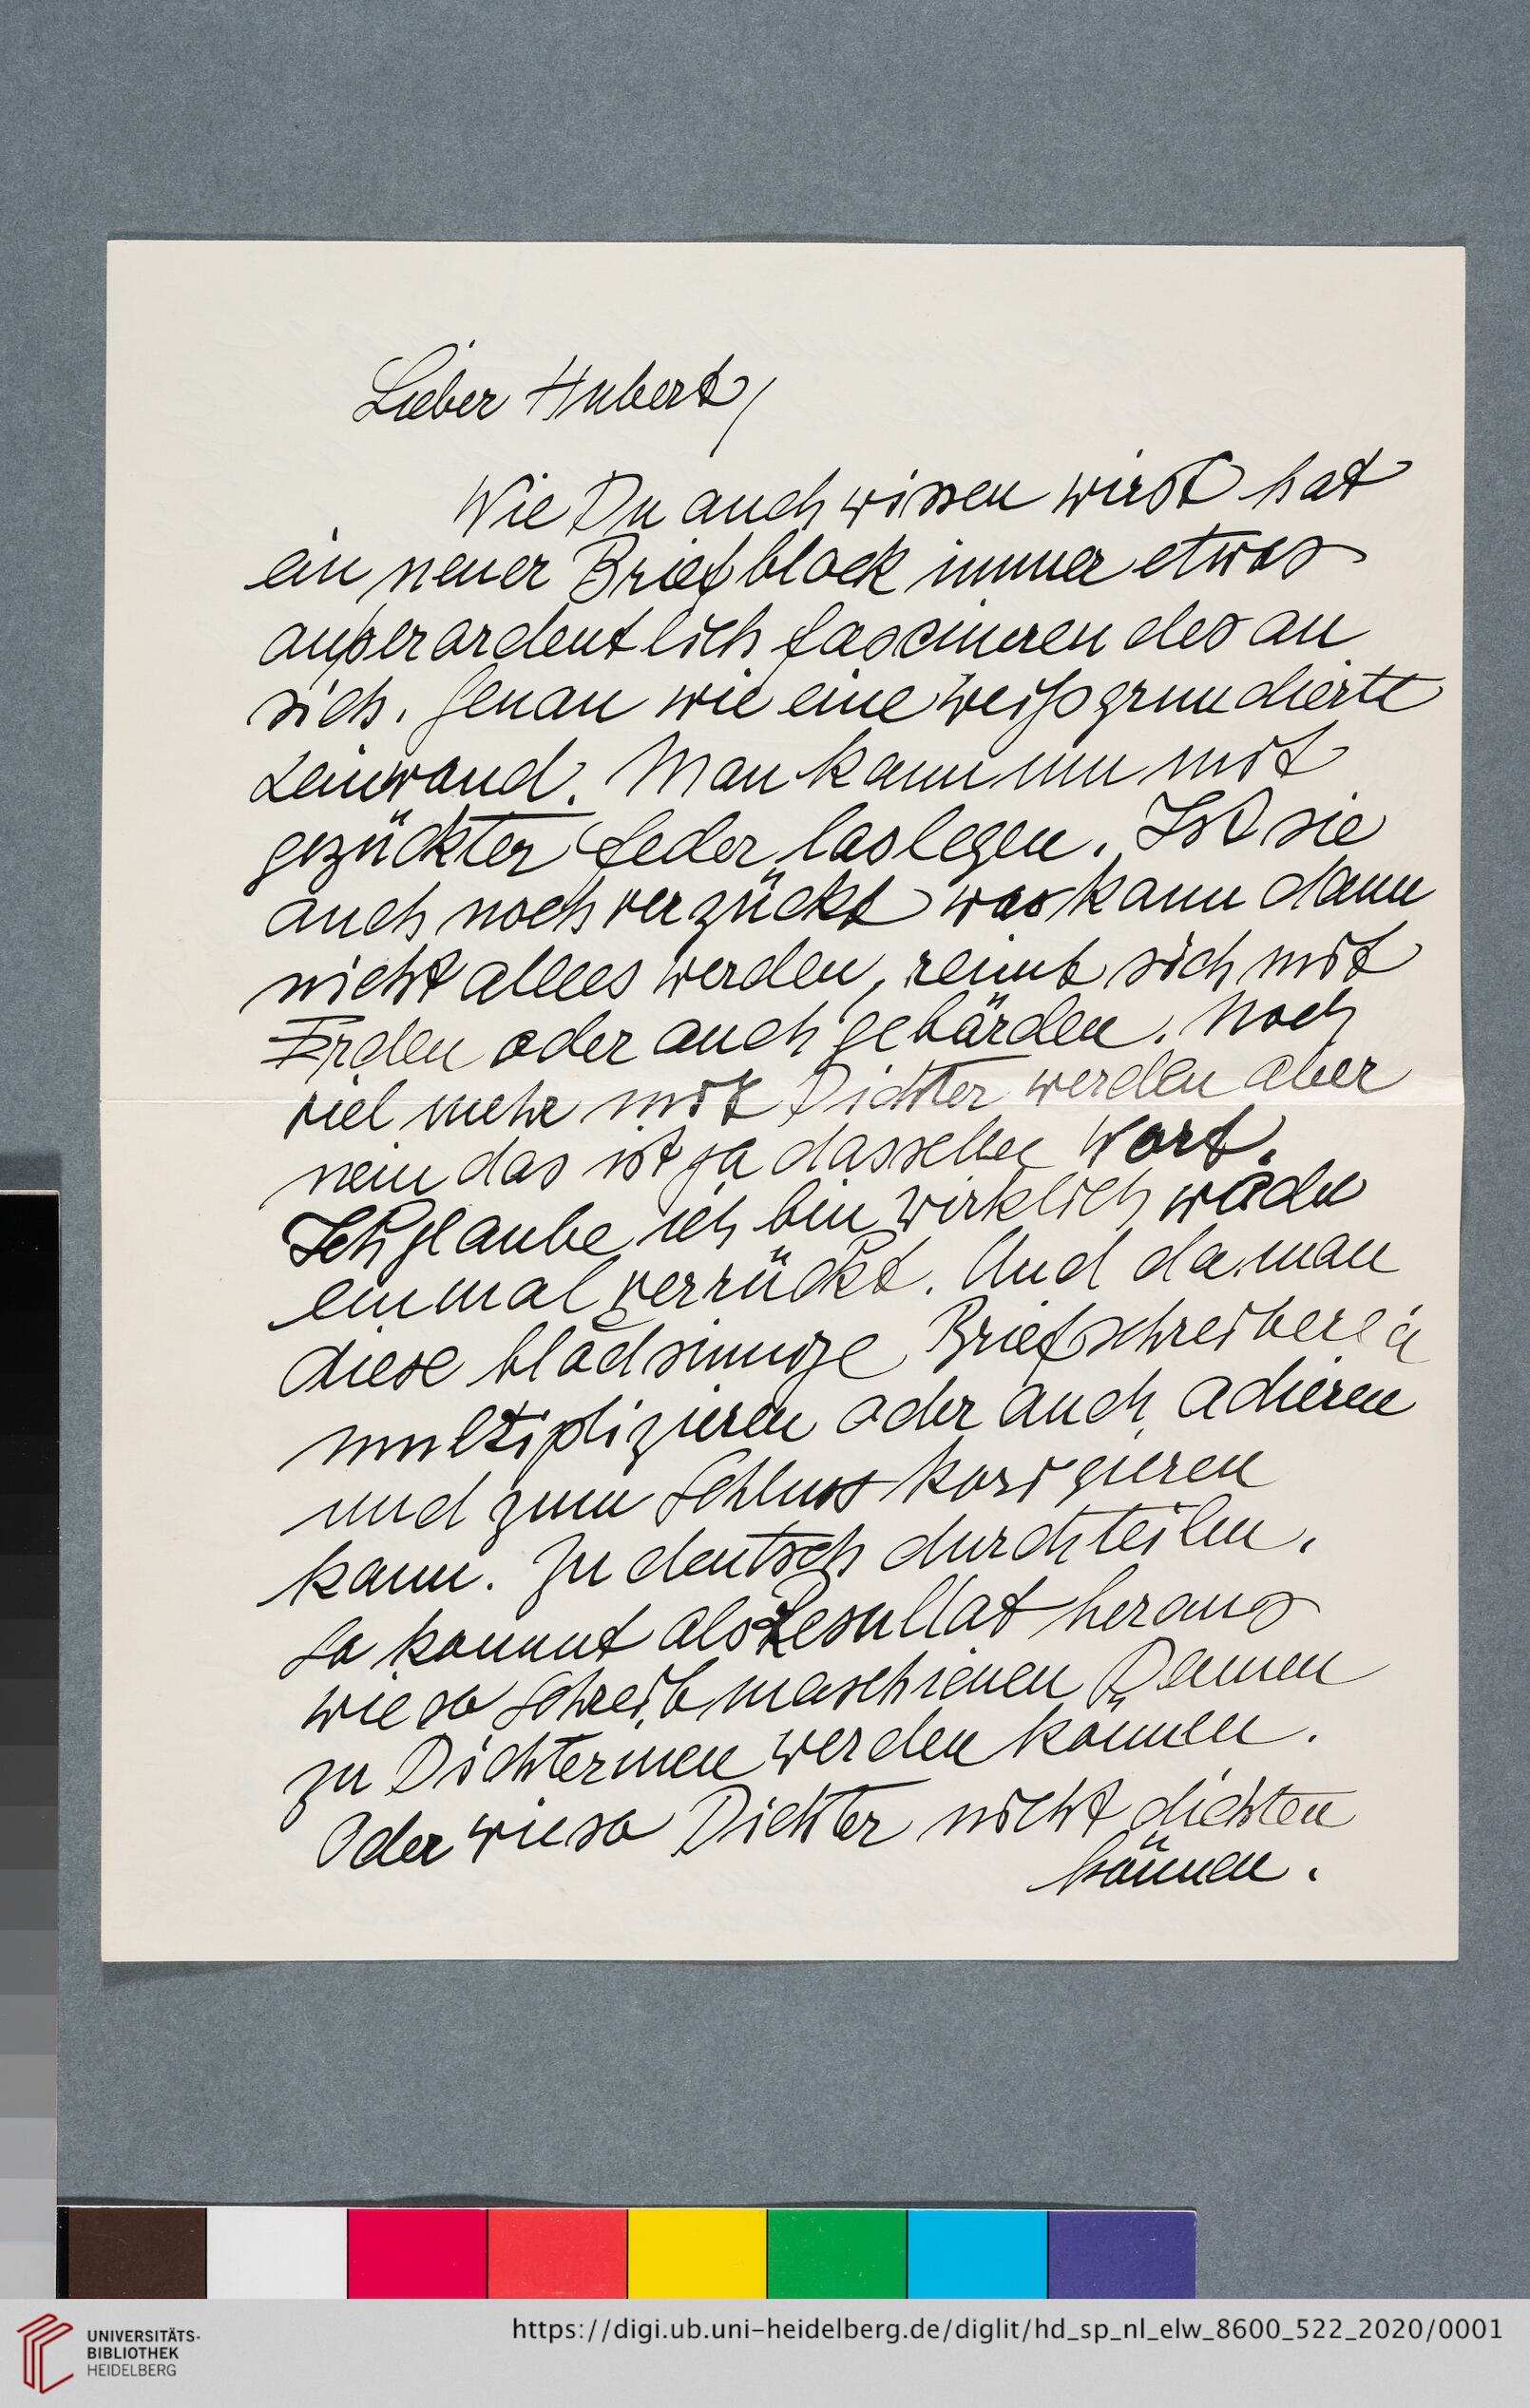 Lieber Hubert,
Wie Du auch wissen wirst hat
ein neuer Briefblock immer etwas
außerordentlich fascinierendes an
sich. Genau wie eine weißgrundierte
Leinwand. Man kann nun mit
gezückter Feder loslegen. Ist sie
auch noch verzückt was kann dann
nicht alles werden, reimt sich mit
Erden oder auch gebärden. Noch
viel mehr mit Dichter werden aber
nein das ist ja dasselbe Wort.
Ich glaube ich bin wirklich wieder
einmal verrückt. Und da man
diese blödsinnige Briefschreiberei
multiplizieren oder auch adieren
und zum Schluss korigieren
kann. Zu deutsch durchteilen.
So kommt als Resultat heraus
wieso Schreibmaschienen Damen
zu Dichterinnen werden können.
Oder wieso Dichter nicht dichten
können.
UNIVERSITÄTS-
BIBLIOTHEK
HEIDELBERG
https://digi.ub.uni-heidelberg.de/diglit/hd_sp_nl_elw_8600_522_2020/0001